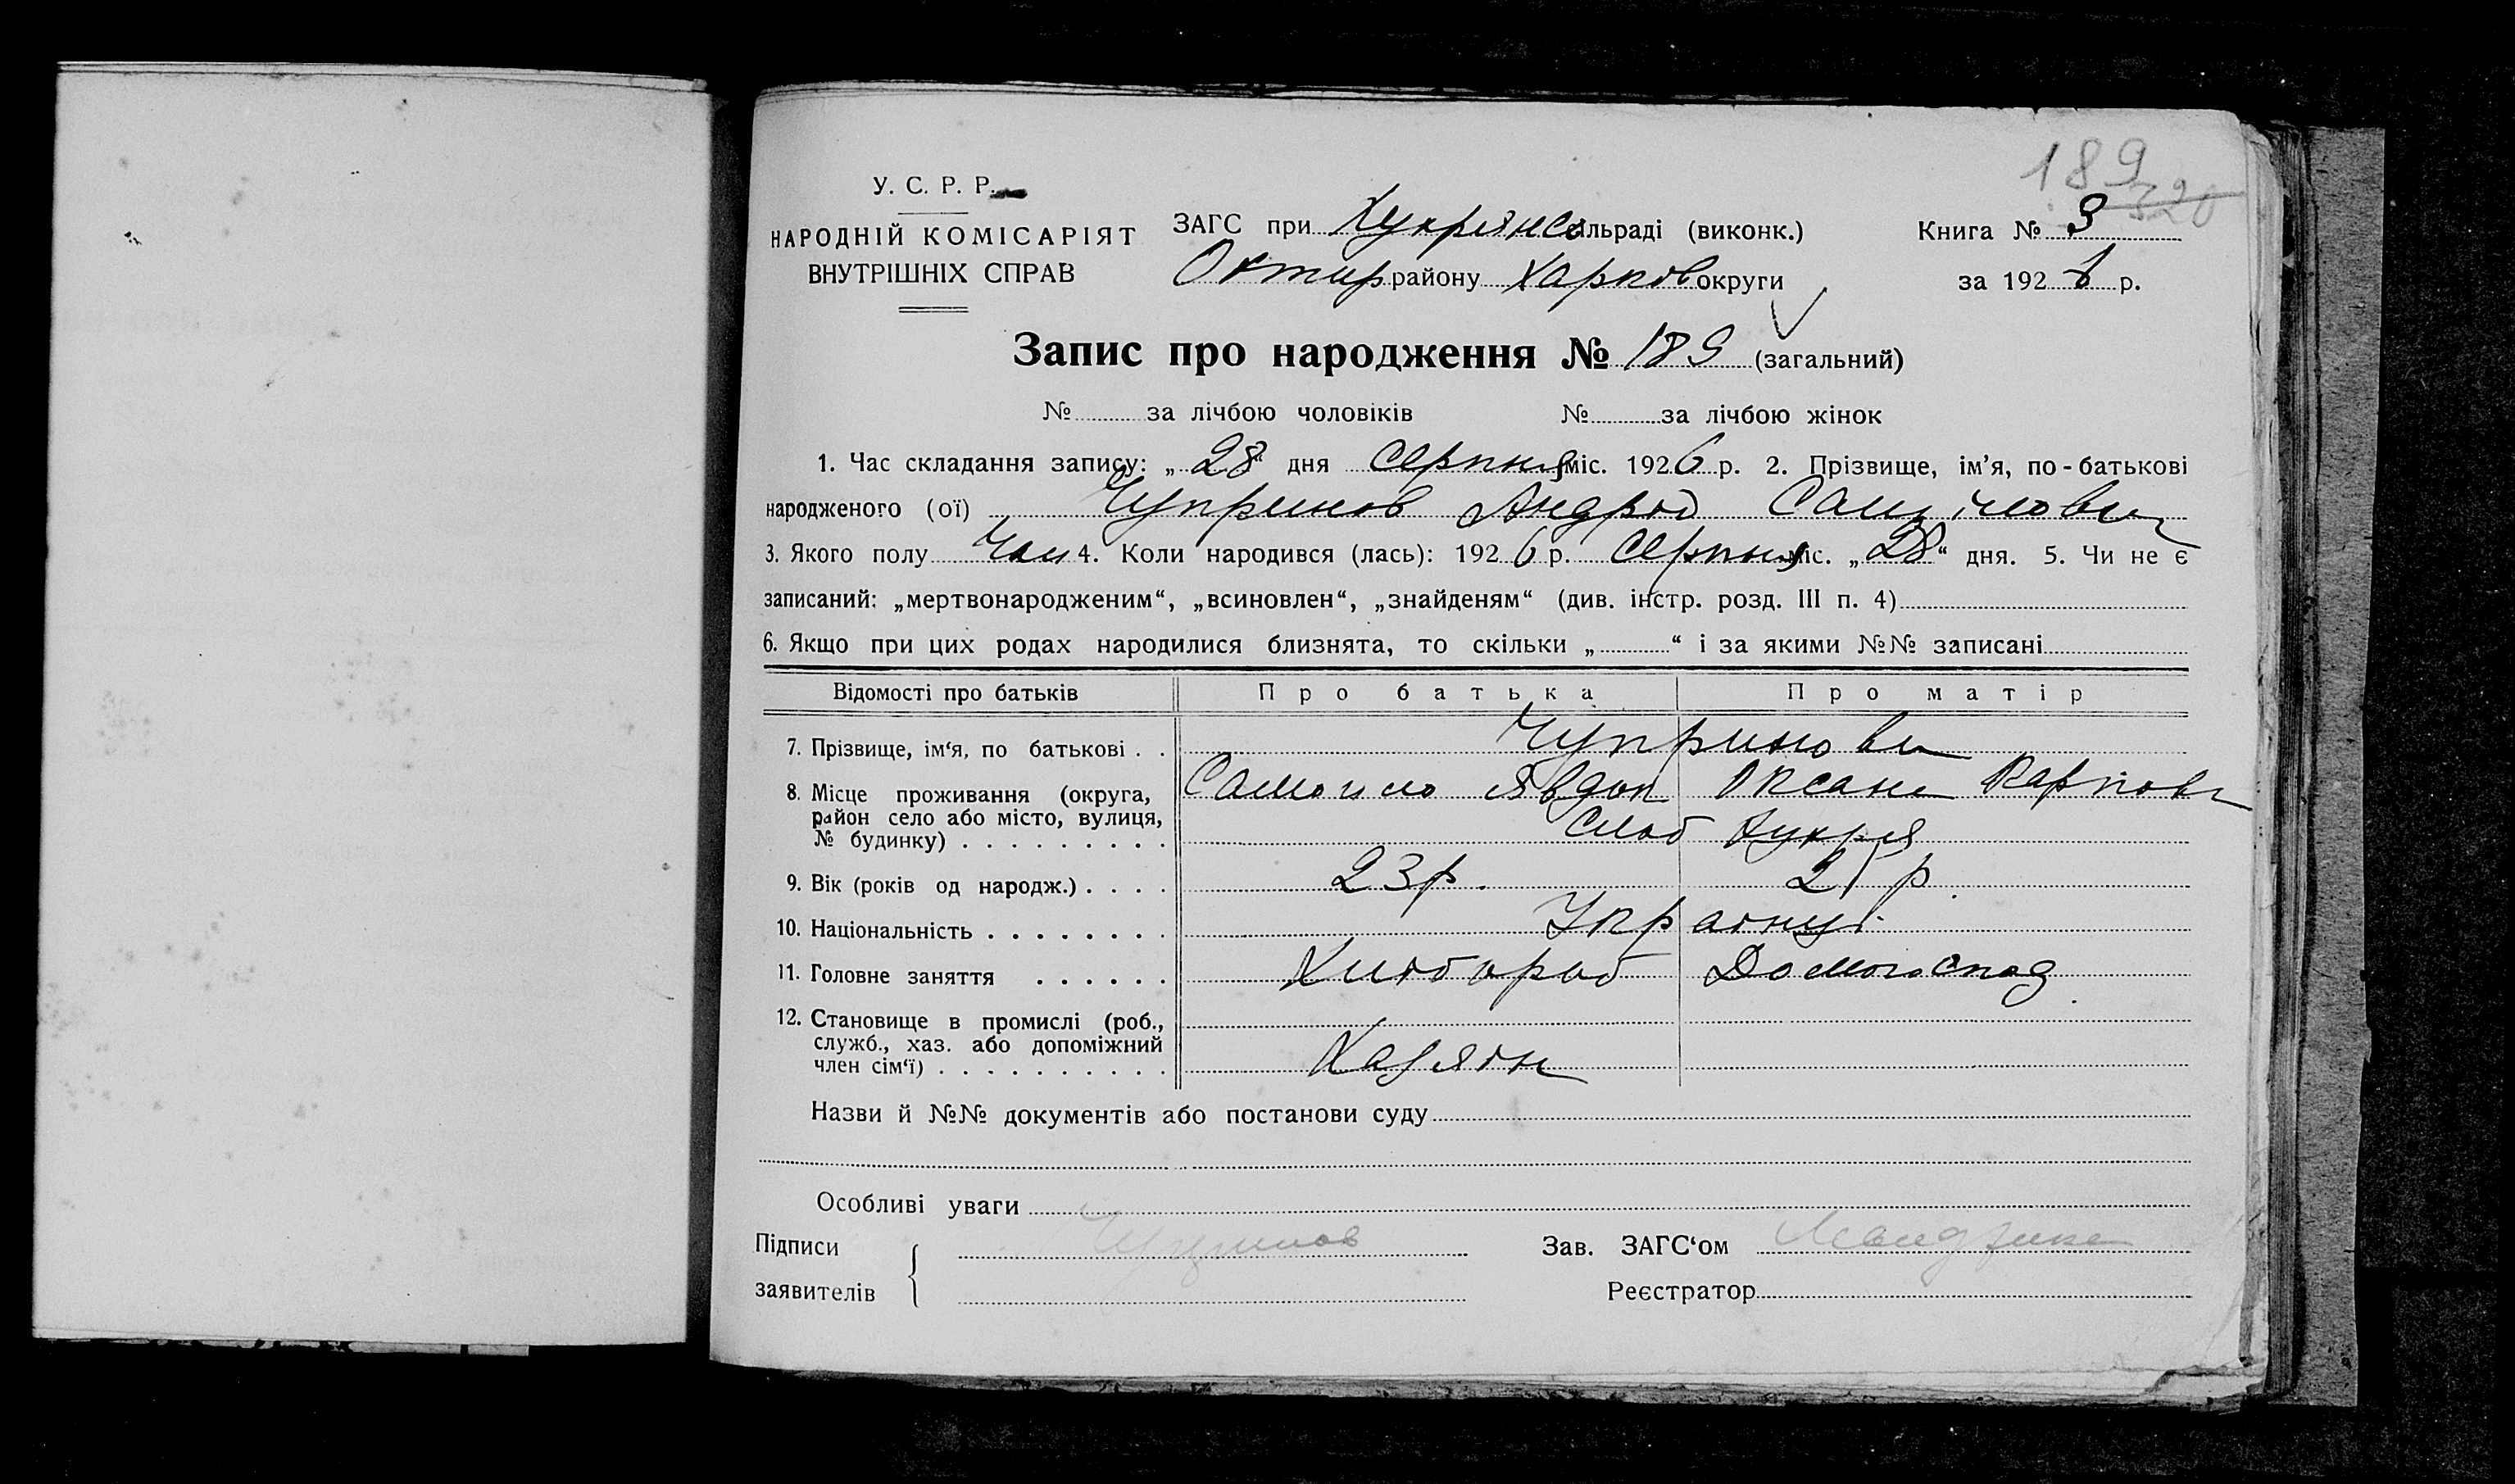 189
320
У. С. Р. Р.
НАРОДНІЙ КОМІСАРІЯТ
ВНУТРІШНІХ СПРАВ
ЗАГС при Хухрянс сільраді (виконк.)
Охтир району Харков округи
Книга № 3
за 1926 р.
Запис про народження № 189 (загальний)
№ за лічбою чоловіків № за лічбою жінок
1. Час складання запису: „28“ дня серпня міс. 1926 р. 2. Прізвище, ім’я, по-батькові
народженого (ої) Чупринов Андрій Самійлович
3. Якого полу Чол 4. Коли народився (лась): 1926 р. серпня міс. „28“ дня. 5. Чи не є
записаний: „мертвонародженим“, „всиновлен“, „знайденям“ (див. інстр. розд. III п. 4)
6. Якщо при цих родах народилися близнята, то скільки „ “ і за якими №№ записані
Відомості про батьків Про батька Про матір
7. Прізвище, ім‘я, по батькові . . Чупринови
Самойло Явдок Оксана Карповн
8. Місце проживання (округа,
район село або місто, вулиця,
№ будинку) . . . . . . . . . Слоб Хухря
9. Вік (років од народж.) . . . . 23р. 21 р.
10. Національність . . . . . . . . Українці
11. Головне заняття . . . . . . Хлібороб Домогоспод
12. Становище в промислі (роб.,
служб., хаз. або допоміжний
член сім‘ї) . . . . . . . . . . Хазяїн
Назви й №№ документів або постанови суду
Особливі уваги
Підписи
заявителів
Чупринов
Зав. ЗАГС‘ом
Реєстратор